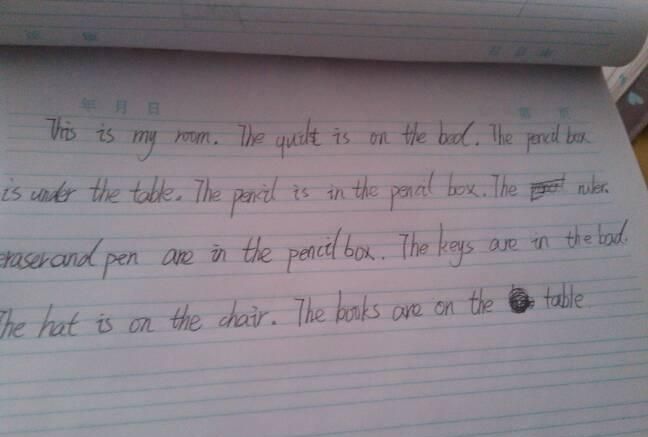 年 月 日
This is my room. The quilt is on the bed. The pencil box
is under the table. The pencil is in the pencil box. The ruler.
eraser and pen are in the pencil box. The keys are in the bad.
The hat is on the chair. The books are on the table